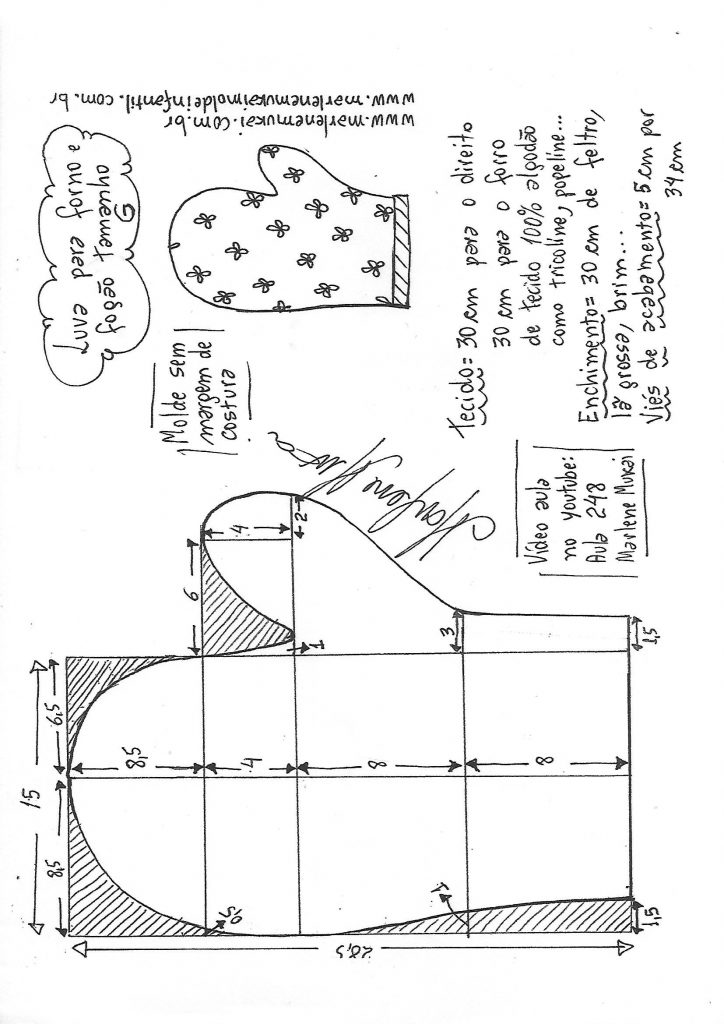 www.marlenemukai.com.br
www.marlenemukaimoldeinfantil.com.br
Luva para forno e
fogão Tamanho
G
Molde sem
margem de
costura
Tecido= 30 cm para o direito
30 cm para o forro
de tecido 100% algodão
como tricoline, popeline...
Enchimento= 30 cm de feltro,
lã grossa, brim...
Viés de acabamento= 5 cm por
34 cm
Marlene Mukai
Vídeo aula
no youtube:
Aula 248
Marlene Mukai
15
8,5
6,5
6
4
2
1
3
1,5
8,5
4
8
8
0,5
1
1,5
28,5